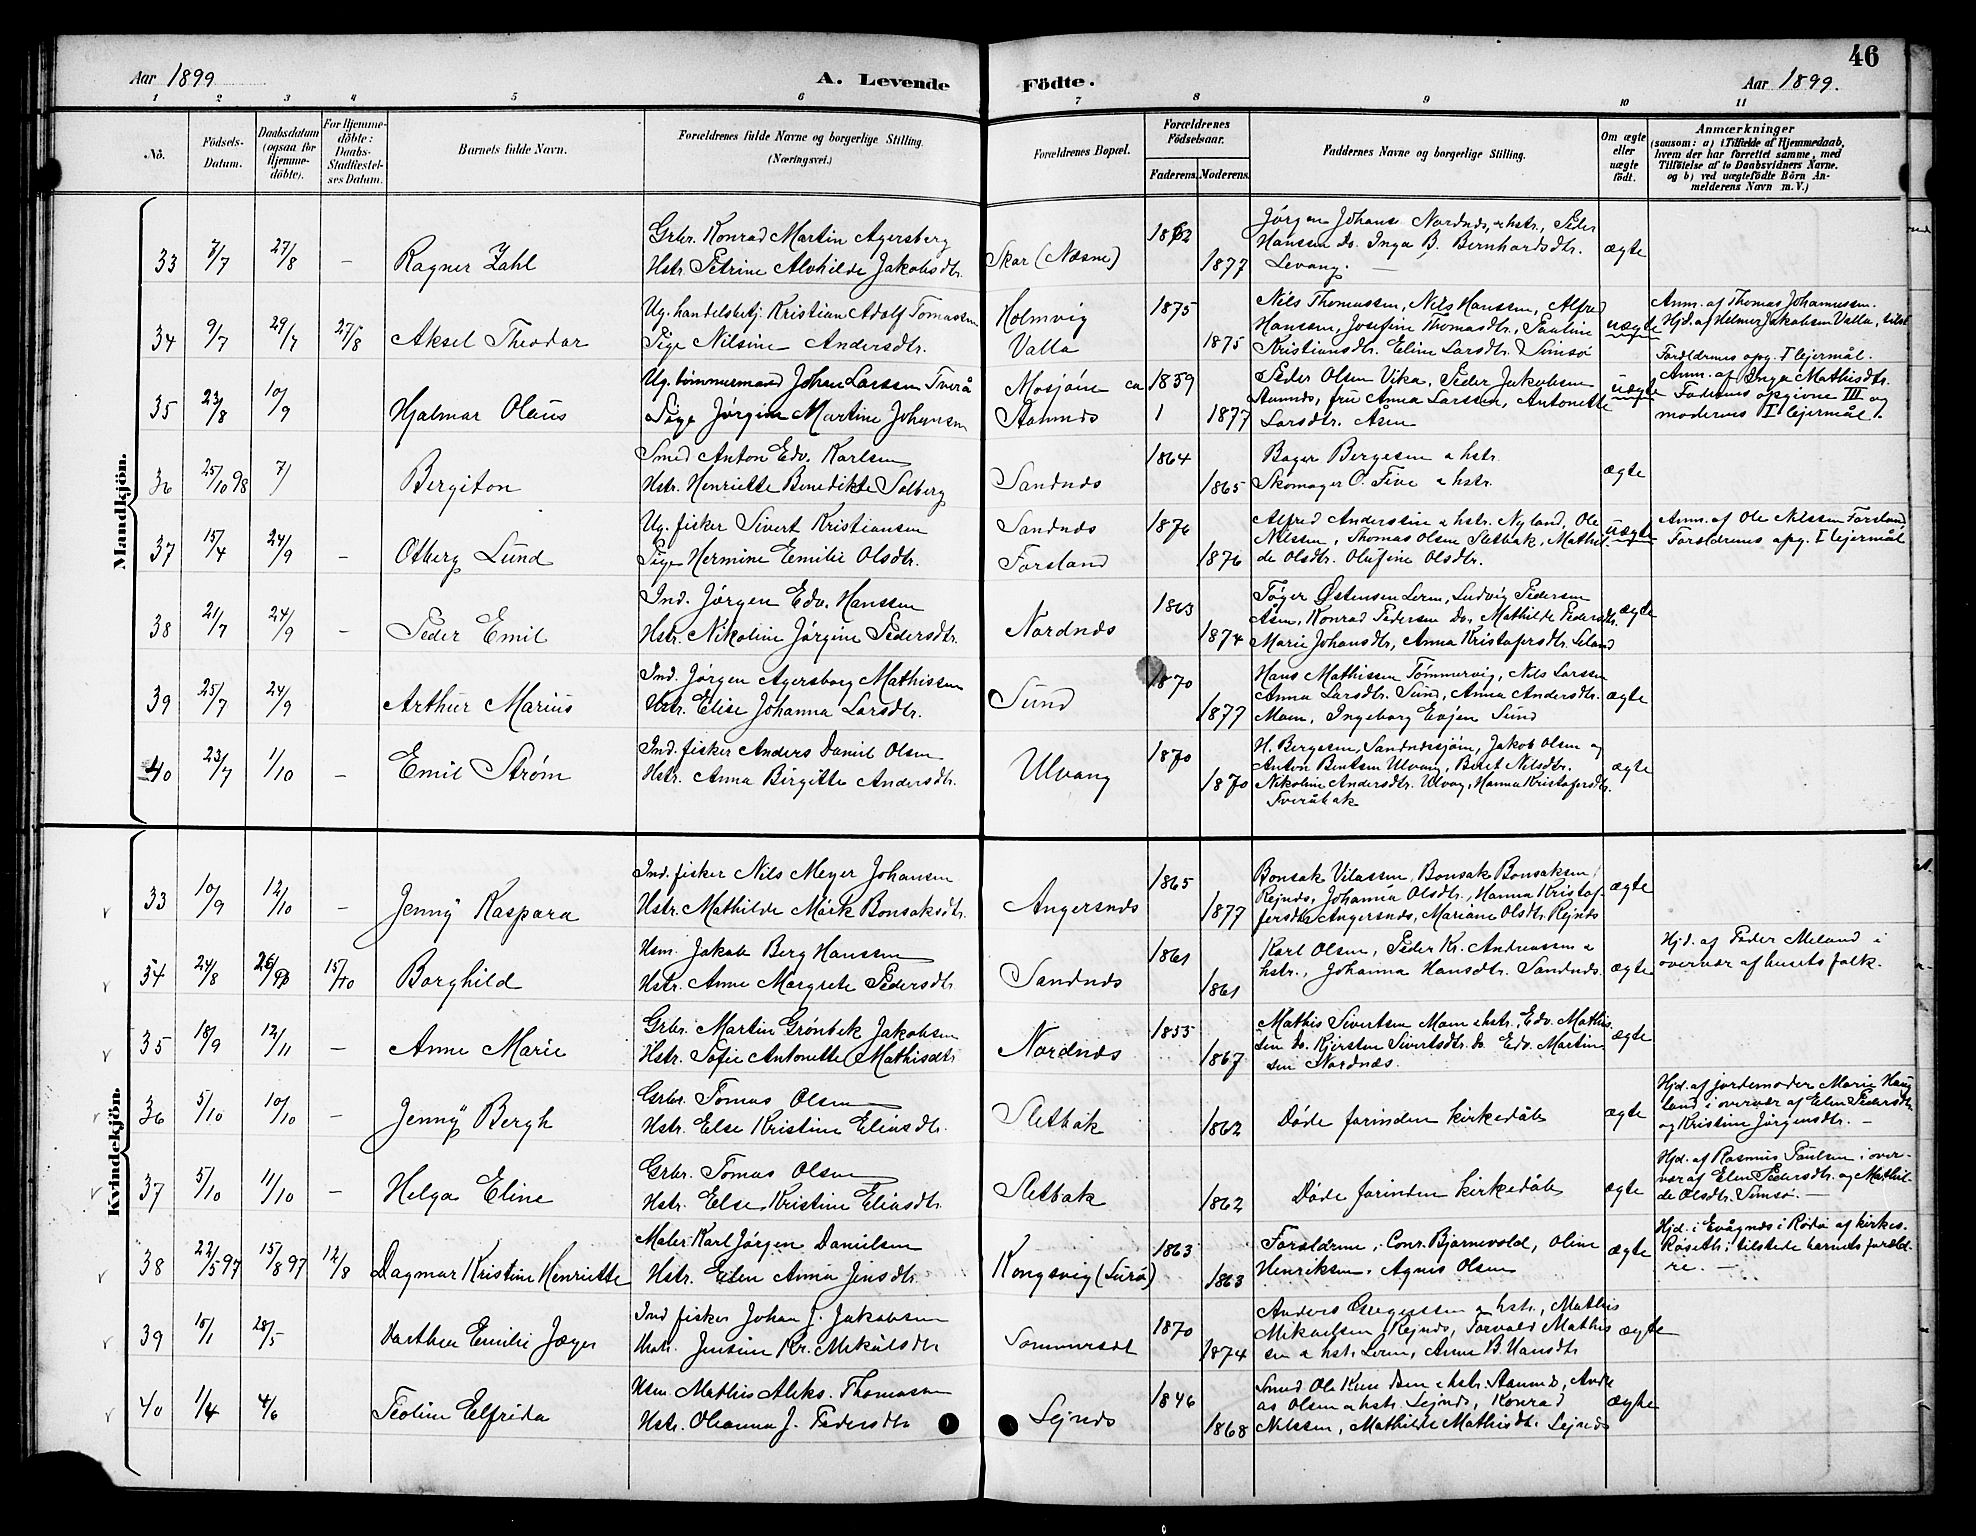 46
Aar 1899
A. Levende Födte.
Aar 1899.
1 2 3 4 5 6 7 8 9 10 11
No.
Födsels-Datum.
Daabsdatum (ogsaa for Hjemme-döbte).
For Hjemme-döbte: Daabs-Stadfæstel-ses Datum.
Barnets fulde Navn.
Forældrenes fulde Navne og borgerlige Stilling. (Næringsvei.)
Forældrenes Bopæl.
Forældrenes Födselsaar.
Faderens. Moderens.
Faddernes Navne og borgerlige Stilling.
Om ægte eller uægte födt.
Anmærkninger
(saasom: a) i Tilfælde af Hjemmedaab, hvem der har forrettet samme, med Tilföielse af to Daabsvidners Navne. og b) ved uægtefödte Börn Anmelderens Navn m. V.)
Mandkjön.
33 7/7 27/8 - Ragner Zahl
Grbr. Konrad Martin Agersborg
Hstr. Petrine Alvhilde Jakobsdtr.
Skar (Næsne) 1862 1877
Jørgen Johans Nordnæs, & hstr., Peder
Hanssen Do. Inga B. Bernhardsdtr.
Levang.
ægte
34 9/7 29/7 27/8 Aksel Theodor
Ug. handelsbetj. Kristian Adolf Tomassen
Pige Nilsine Andersdtr.
Holmvig
Valla
1875 1875
Nils Thomassen, Nils Hanssen, Alfred
Hanssen, Josefine Thomasdtr., Pauline
Kristiansdtr. Eline Larsdtr. Simsø
uægte
Anm. af Thomas Johannessen.
Hjd. af Helmer Jakobsen Valla, tilst
Forældrenes opg. I lejermål.
35 23/8 10/9 Hjalmar Olaus
Ug. tømmermand Johan Larssen Tverå
Pige Jørgine Martine Johansen
Mosjøen ca 1859
Stamnes 1 1877
Peder Olsen Vika, Peder Jakobsen
Stamnes, fru Anna Larssen, Antonette
Larsdtr. Åsen
uægte
Anm. af Inga Mathisdtr.
Faderens opgivne III og
moderens I lejermål.
36 25/10 98 7/ Bergiton
Smed Anton Edv. Karlsen
Hstr. Henriette Benedikte Solberg
Sandnes 1864 1865
Bager Bergesen & hstr.
Skomager O. Five & hstr.
ægte
37 15/4 24/9 - Otberg Lund
Ug. fisker Sivert Kristiansen
Pige Hermine Emilie Olsdtr.
Sandnes
Forsland
1876 1876
Alfred Anderssen & hstr. Nyland, Ole
Nilssen, Thomas Olsen Sletbak, Mathil
de Olsdtr. Olufine Olsdtr.
uægte
Anm. af Ole Nilssen Forsland
Forældrenes opg. I lejermål
38 21/7 24/9 - Peder Emil
Ind. Jørgen Edv. Hanssen
Hstr. Nikoline Jørgine Pedersdtr.
Nordnæs 1863 1874
Tøger Østensen Lerm, Ludvig Pedersen
Åsen, Konrad Pedersen Do, Mathilde Pedersdtr.
Marie Johansdtr., Anna Kristofersdtr. Leland
ægte
39 25/7 24/9 Arthur Marius
Ind. Jørgen Agersborg Mathissen
Hstr. Elise Johanna Larsdtr.
Sund 1870 1877
Hans Mathissen Tømmervig, Nils Larssen
Anna Larsdtr. Sund, Anna Andersdtr.
Moen, Ingeborg Evjen Sund
ægte
40 23/7 1/10 - Emil Strøm
Ind. fisker Anders Daniel Olsen
Hstr. Anna Birgitte Andersdtr.
Ulvang 1870 1870
H. Bergesen, Sandnessjøen, Jakob Olsen og
Anton Bentsen Ulvang, Beret Nilsdtr.
Nikoline Andersdtr. Ulvang, Hanna Kristofersdtr.
Tveråbak
ægte
Kvindekjön.
33 10/9 12/10 - Jenny Kaspara
Ind. fisker Nils Meyer Johansen
Hstr. Mathilde Mørk Bonsaksdtr.
Angersnes 1865 1877
Bonsak Vilassen, Bonsak Bonsaksen,
Rejnes, Johanna Olsdtr., Hanna Kristof-
fersdtr Angersnes, Mariane Olsdtr. Rejnes
ægte
34 24/8 26/9 15/10 Borghild
Hsm. Jakob Berg Hanssen
Hstr. Anne Margrete Pedersdtr
Sandnes 1861 1861
Karl Olsen, Peder Kr. Andreassen &
hstr., Johanna Hansdtr. Sandnes.
ægte
Hjd. af Peder Meland i
overvær af husets folk.
35 18/9 12/11 - Anne Marie
Grbr. Martin Grønbek Jakobsen
Hstr. Sofie Antonette Mathisdtr
Nordnæs 1855 1867
Mathis Sivertsen Moen & hstr., Edv. Mathis
sen Do. Kjersten Sivertsdtr. Do Edv. Martin
sen Nordnæs.
ægte
36 5/10 10/10 - Jenny Bergh
Grbr. Tomas Olsen
Hstr. Else Kristine Eliasdtr.
Sletbak 1862
Døde forinden kirkedåb
ægte
Hjd. af jordemoder Marie Haug
land i overvær af Elen Pedersdtr
og Kristine Jørgensdtr. -
37 5/10 11/10 - Helga Eline
Grbr. Tomas Olsen
Hstr. Else Kristine Eliasdtr.
Sletbak 1862
Døde forinden kirkedåb
ægte
Hjd. af Rasmus Paulsen i over-
vær af Elen Pedersdtr. og Mathil-
de Olsdtr. Simsø. -
38 22/5 97 15/8 97 12/8 Dagmar Kristine Henriette
Maler Karl Jørgen Danielsen
Hstr. Elen Anna Jensdtr.
Kongsvig (Lurø) 1863 1863
Forældrene, Conr. Bjørnevold, Oline
Henriksen, Agnes Olsen
ægte
Hjd. i Evågnes i Rødø af kirkes.
Røseth; tilstede barnets foræld-
re. -
39 15/1 28/5 Darthea Emilie Jæger
Ind fisker Johan J. Jakobsen
Hstr. Jensine Kr. Mikalsdtr
Sommersæt 1870 1874
Anders Gregerssen & hstr., Mathis
Mikaelsen, Rejnes, Torvald Mathis
sen & hstr. Lerm, Anne B. Hansdtr
ægte
40 1/4 4/6 Teoline Elfrida
Hsm. Mathis Aleks. Thomassen
Hstr. Oleanna J. Pedersdtr
Lejnes 1846 1868
Smed Ole & hstr. Stamnes, Andre
as Olsen & hstr. Lejnes, Konrad
Nilssen, Mathilde Mathisdtr. Lejnes
ægte